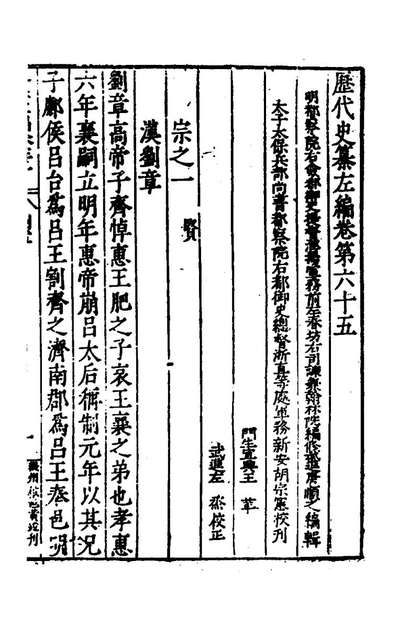 歷代史纂左編卷第六十五
明都察院右僉都御史提督淮揚軍務前右春坊右司諫兼翰林院編修武進唐順之編輯
太子太保兵部尚書都察院右都御史總督浙直等處軍務新安胡宗憲校刊
門生宜興王革
武進左烝校正
宗之一　賢
漢劉章
劉章高帝子齊悼惠王肥之子哀王襄之弟也孝惠
六年襄嗣立明年惠帝崩吕太后稱制元年以其兄
子酈侯吕台爲吕王割齊之濟南郡爲吕王奉邑明